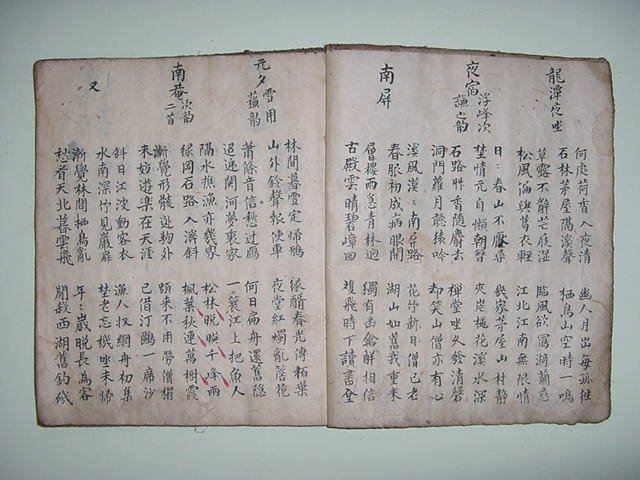 龍潭夜坐
何處荷香入夜清　幽人月出每孤徃
石林茅屋隔溪聲　栖鳥山空時一鳴
草露不辭芒屐湿　臨風欲寫漪蘭意
松風偏與葛衣輕　江北江南無限情
夜宿浮峰次謙之韵
日ミ春山不厭尋　幾家茅屋山村静
埜情元自懶朝簪　夾岸桃花溪水深
石路草香随麝去　禅堂坐久發清磬
洞門蘿月聽猿吟　却笑山僧亦有心
南屏
溪風漠ミ南屏路　花竹新日僧已老
春服初成病眼開　湖山如舊我重来
層楼雨急青林迥　獨有幽禽解相信
古殿雲晴碧嶂回　雙飛時下讀書台
元夕雪用蘇韵
林間暮雪定帰鴉　緑醑春光傳栢葉
山外鈴聲報使車　夜堂紅燭亂簷花
蕭條音信愁边鴈　何日扁舟還舊隐
迢遞関河夢裏家　一簑江上把魚人
南菴次韵二首
隔水樵漁亦幾家　松林晚映千峰雨
緑冈石路入溪斜　楓葉秋連萬樹霞
漸覺形骸逃物外　頻来不用勞僧榻
未妨遊樂在天涯　已借汀鷗一席沙
又
斜日江波動客衣　漁人収網舟初集
水南深竹見巖扉　埜老忘機坐未帰
漸覺林間栖鳥亂　年ミ歳晚長為客
愁看天北暮雲飛　閒殺西湖舊釣磯